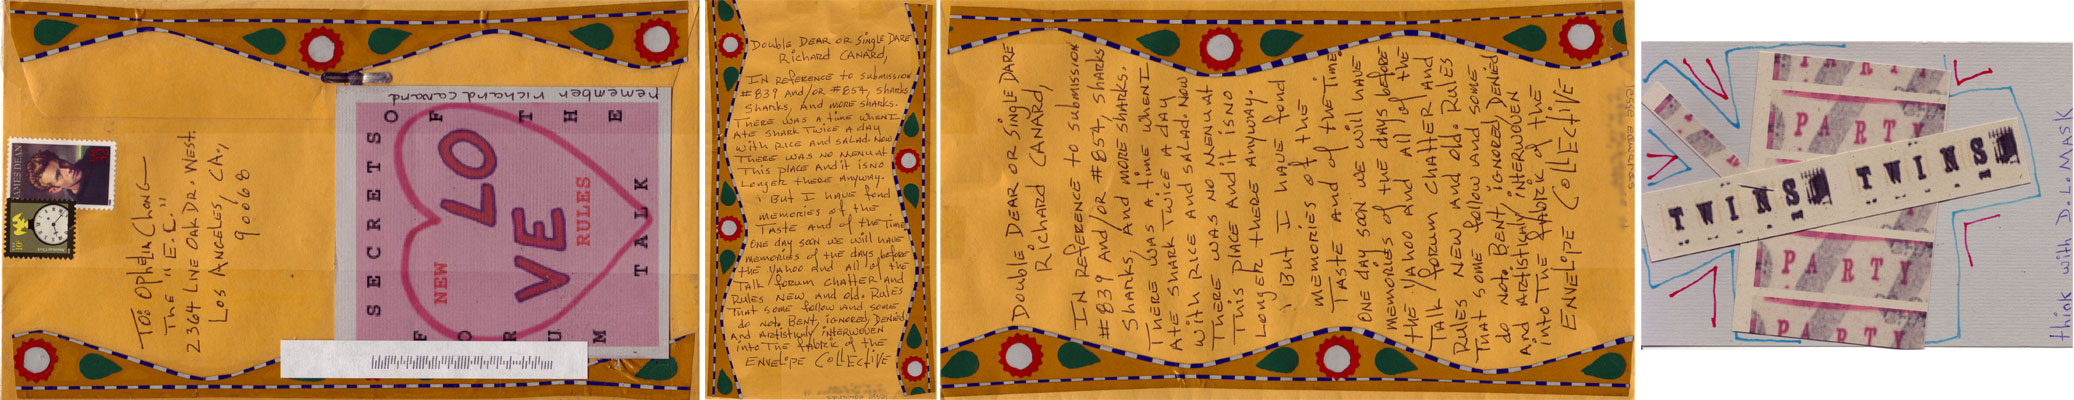 JAMES DEAN
TO: OPHELIA CHONG
THE "E.C."
2364 LIVE OAK DR. WEST.
LOS ANGELES, CA.,
90068
remember richard canard
SECRETS OF THE
LOVE
NEW RULES
FORUM TALK
DOUBLE DEAR OR SINGLE DARE
RICHARD CANARD,
IN REFERENCE TO SUBMISSION
#839 AND/OR #854, SHARKS
SHARKS, AND MORE SHARKS.
THERE WAS A TIME WHEN I
ATE SHARK TWICE A DAY
WITH RICE AND SALAD. NOW
THERE WAS NO MENU AT
THIS PLACE AND IT IS NO
LONGER THERE ANYWAY.
BUT I HAVE FOND
MEMORIES OF THE
TASTE AND OF THE TIME.
ONE DAY SOON WE WILL HAVE
MEMORIES OF THE DAYS BEFORE
THE YAHOO AND ALL OF THE
TALK/FORUM CHATTER AND
RULES NEW AND OLD. RULES
THAT SOME FOLLOW AND SOME
DO NOT. BENT, IGNORED, DENIED
AND ARTISTICALLY INTERWOVEN
INTO THE FABRIC OF THE
ENVELOPE COLLECTIVE
DOUBLE DEAR OR SINGLE DARE
RICHARD CANARD,
IN REFERENCE TO SUBMISSION
#839 AND/OR #854, SHARKS
SHARKS, AND MORE SHARKS.
THERE WAS A TIME WHEN I
ATE SHARK TWICE A DAY
WITH RICE AND SALAD. NOW
THERE WAS NO MENU AT
THIS PLACE AND IT IS NO
LONGER THERE ANYWAY.
BUT I HAVE FOND
MEMORIES OF THE
TASTE AND OF THE TIME.
ONE DAY SOON WE WILL HAVE
MEMORIES OF THE DAYS BEFORE
THE YAHOO AND ALL OF THE
TALK/FORUM CHATTER AND
RULES NEW AND OLD. RULES
THAT SOME FOLLOW AND SOME
DO NOT. BENT, IGNORED, DENIED
AND ARTISTICALLY INTERWOVEN
INTO THE FABRIC OF THE
ENVELOPE COLLECTIVE
PARTY
PARTY
TWINS TWINS
PARTY
PARTY
think with D.Lo MASK